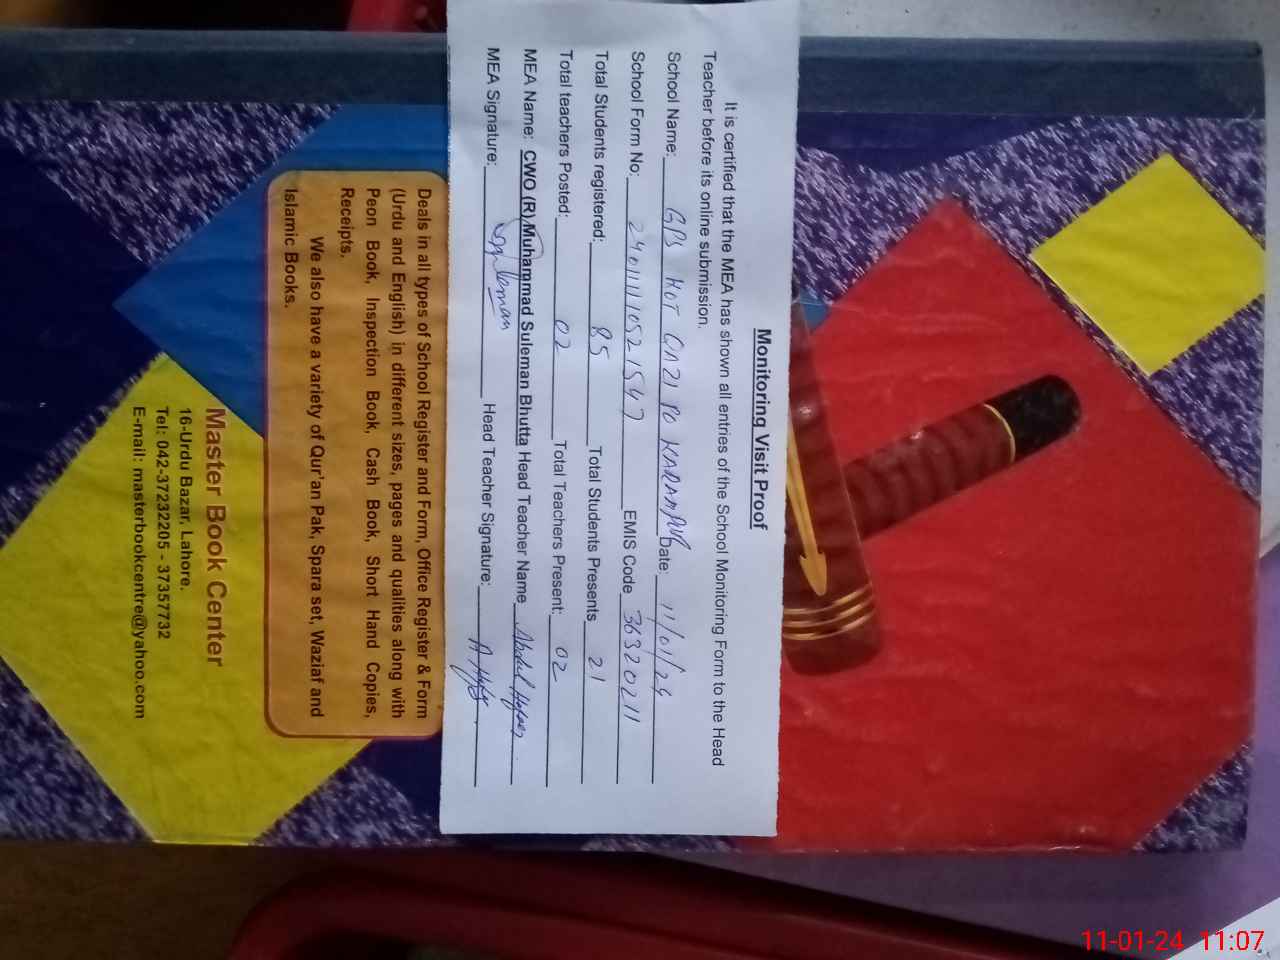 Monitoring Visit Proof
It is certified that the MEA has shown all entries of the School Monitoring Form to the Head
Teacher before its online submission.
School Name: GPS KOT QAZI PO KARAMPUR Date: 11/01/24
School Form No: 2401111052 1547 EMIS Code 36320211
Total Students registered: 85 Total Students Presents 21
Total teachers Posted: 02 Total Teachers Present: 02
MEA Name: CWO (R) Muhammad Suleman Bhutta Head Teacher Name Abdul
MEA Signature: Head Teacher Signature:
Deals in all types of School Register and Form, Office Register & Form
(Urdu and English) in different sizes, pages and qualities along with
Peon Book, Inspection Book, Cash Book, Short Hand Copies,
Receipts.
We also have a variety of Qur'an Pak, Spara set, Waziaf and
Islamic Books.
Master Book Center
16-Urdu Bazar, Lahore.
Tel: 042-37232205 - 37357732
E-mail: masterbookcentre@yahoo.com
11-01-24 11:07